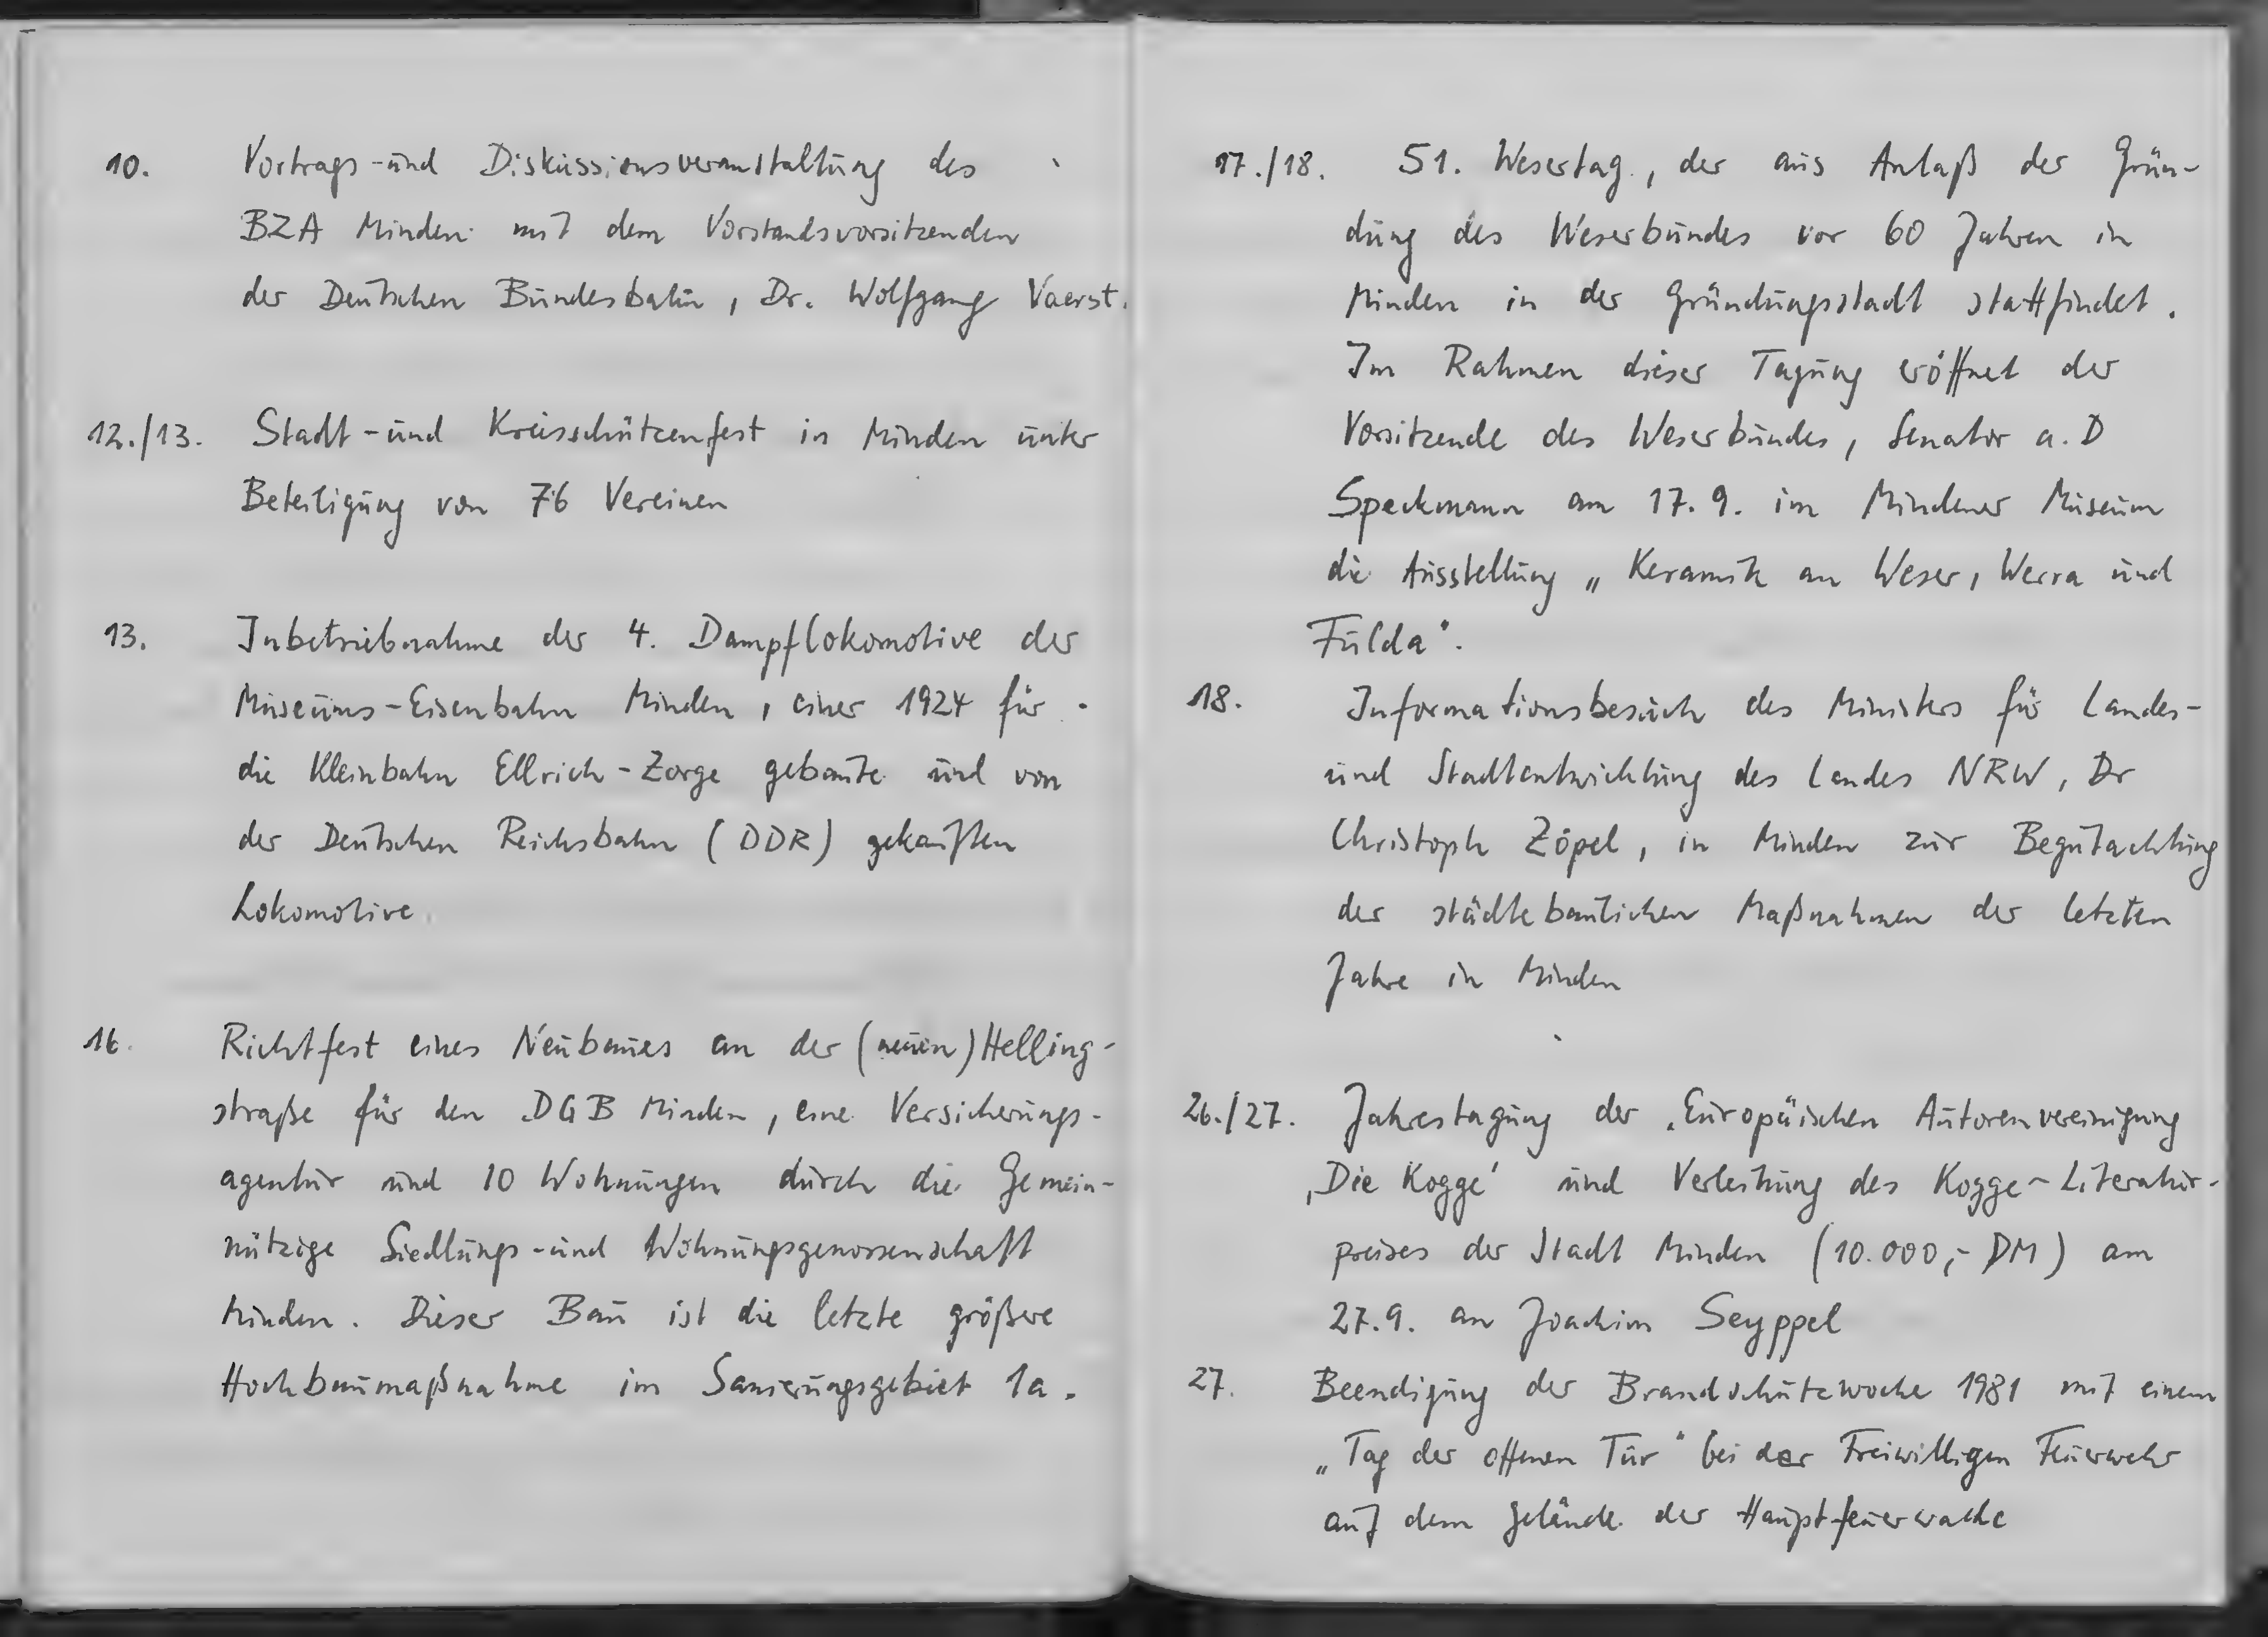 10. Vortrags- und Diskussionsveranstaltung des
BZA Minden mit dem Vorstandsvorsitzenden
der Deutschen Bundesbahn, Dr. Wolfgang Vaerst.
12./13. Stadt- und Kreisschützenfest in Minden unter
Beteiligung von 76 Vereinen
13. Inbetriebnahme der 4. Dampflokomotive der
Museums-Eisenbahn Minden, einer 1924 für
die Kleinbahn Ellrich-Zorge gebaute und von
der Deutschen Reichsbahn (DDR) gekauften
Lokomotive.
16. Richtfest eines Neubaues an der (neuen) Helling-
straße für den DGB Minden, eine Versicherungs-
agentur und 10 Wohnungen durch die Gemein-
nützige Siedlungs- und Wohnungsgenossenschaft
Minden. Dieser Bau ist die letzte größere
Hochbaumaßnahme im Sanierungsgebiet 1a.
17./18. 51. Wesertag, der aus Anlaß der Grün-
dung des Weserbundes vor 60 Jahren in
Minden in der Gründungsstadt stattfindet.
Im Rahmen dieser Tagung eröffnet der
Vorsitzende des Weserbundes, Senator a.D
Speckmann am 17.9. im Mindener Museum
die Ausstellung „Keramik an Weser, Werra und
Fulda".
18. Informationsbesuch des Ministers für Landes-
und Stadtentwicklung des Landes NRW, Dr
Christoph Zöpel, in Minden zur Begutachtung
der städtebaulichen Maßnahmen der letzten
Jahre in Minden
26./27. Jahrestagung der Europäischen Autorenvereinigung
‚Die Kogge' und Verleihung des Kogge-Literatur-
preises der Stadt Minden (10.000,- DM) am
27.9. an Joachim Seyppel
27. Beendigung der Brandschutzwoche 1981 mit einem
„Tag der offenen Tür" bei der Freiwilligen Feuerwehr
auf dem Gelände der Hauptfeuerwache